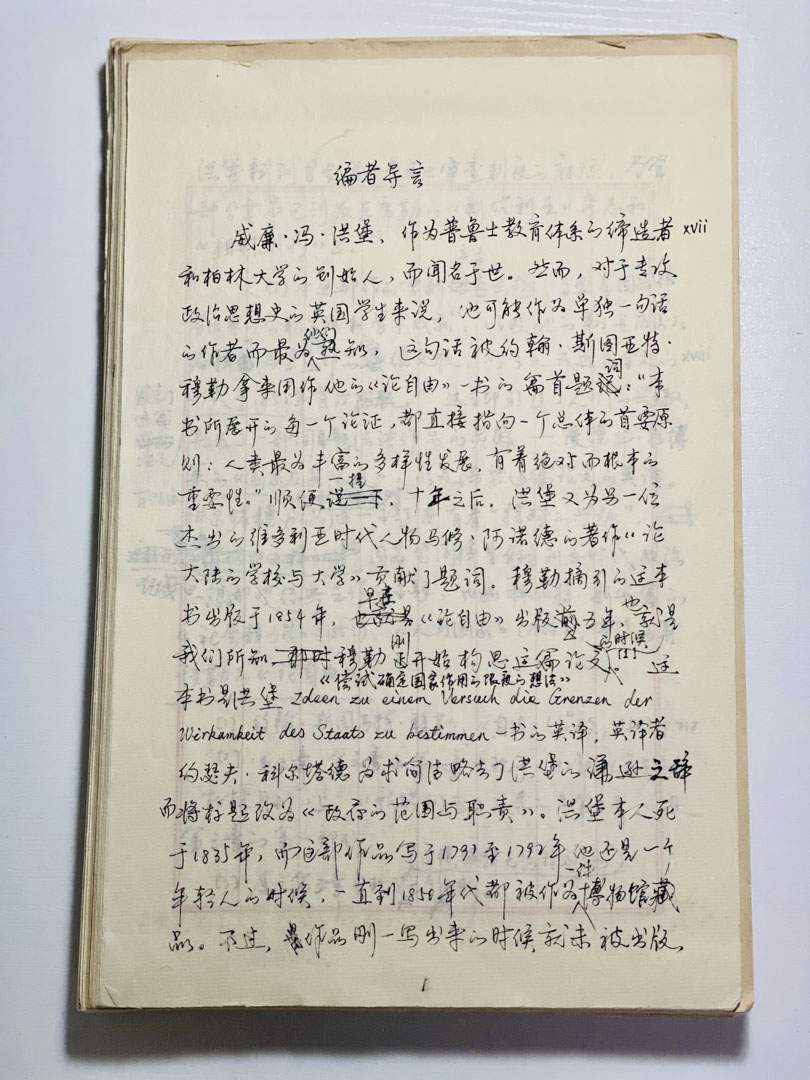 编者导言
威廉·冯·洪堡，作为普鲁士教育体系的缔造者 xvii
和柏林大学的创始人，而闻名于世。然而，对于专攻
政治思想史的英国学生来说，他可能作为单独一句话
的作者而最为他们熟知，这句话被约翰·斯图亚特·
穆勒拿来用作他的《论自由》一书的篇首题词：“本
书所展开的每一个论证，都直接指向一个总体的首要原
则：人类最为丰富的多样性发展，有着绝对而根本的
重要性。”顺便一提，十年之后，洪堡又为另一位
杰出的维多利亚时代人物马修·阿诺德的著作《论
大陆的学校与大学》贡献了题词。穆勒摘引的这本
书出版于1854年，早在《论自由》出版前五年，也就是
我们所知穆勒刚开始构思这篇论文的时候[1]。这
本书是洪堡《尝试确定国家作用的限度的想法》
Ideen zu einem Versuch die Grenzen der
Wirkamkeit des Staats zu bestimmen 一书的英译，英译者
约瑟夫·科尔塔德为求简洁略去了洪堡的谦逊之辞
而将标题改为《政府的范围与职责》。洪堡本人死
于1835年，而这部作品写于1791至1792年他还是一个
年轻人的时候，一直到1850年代都被作为一件博物馆藏
品。不过，作品刚一写出来的时候就未被出版，
1
xviii